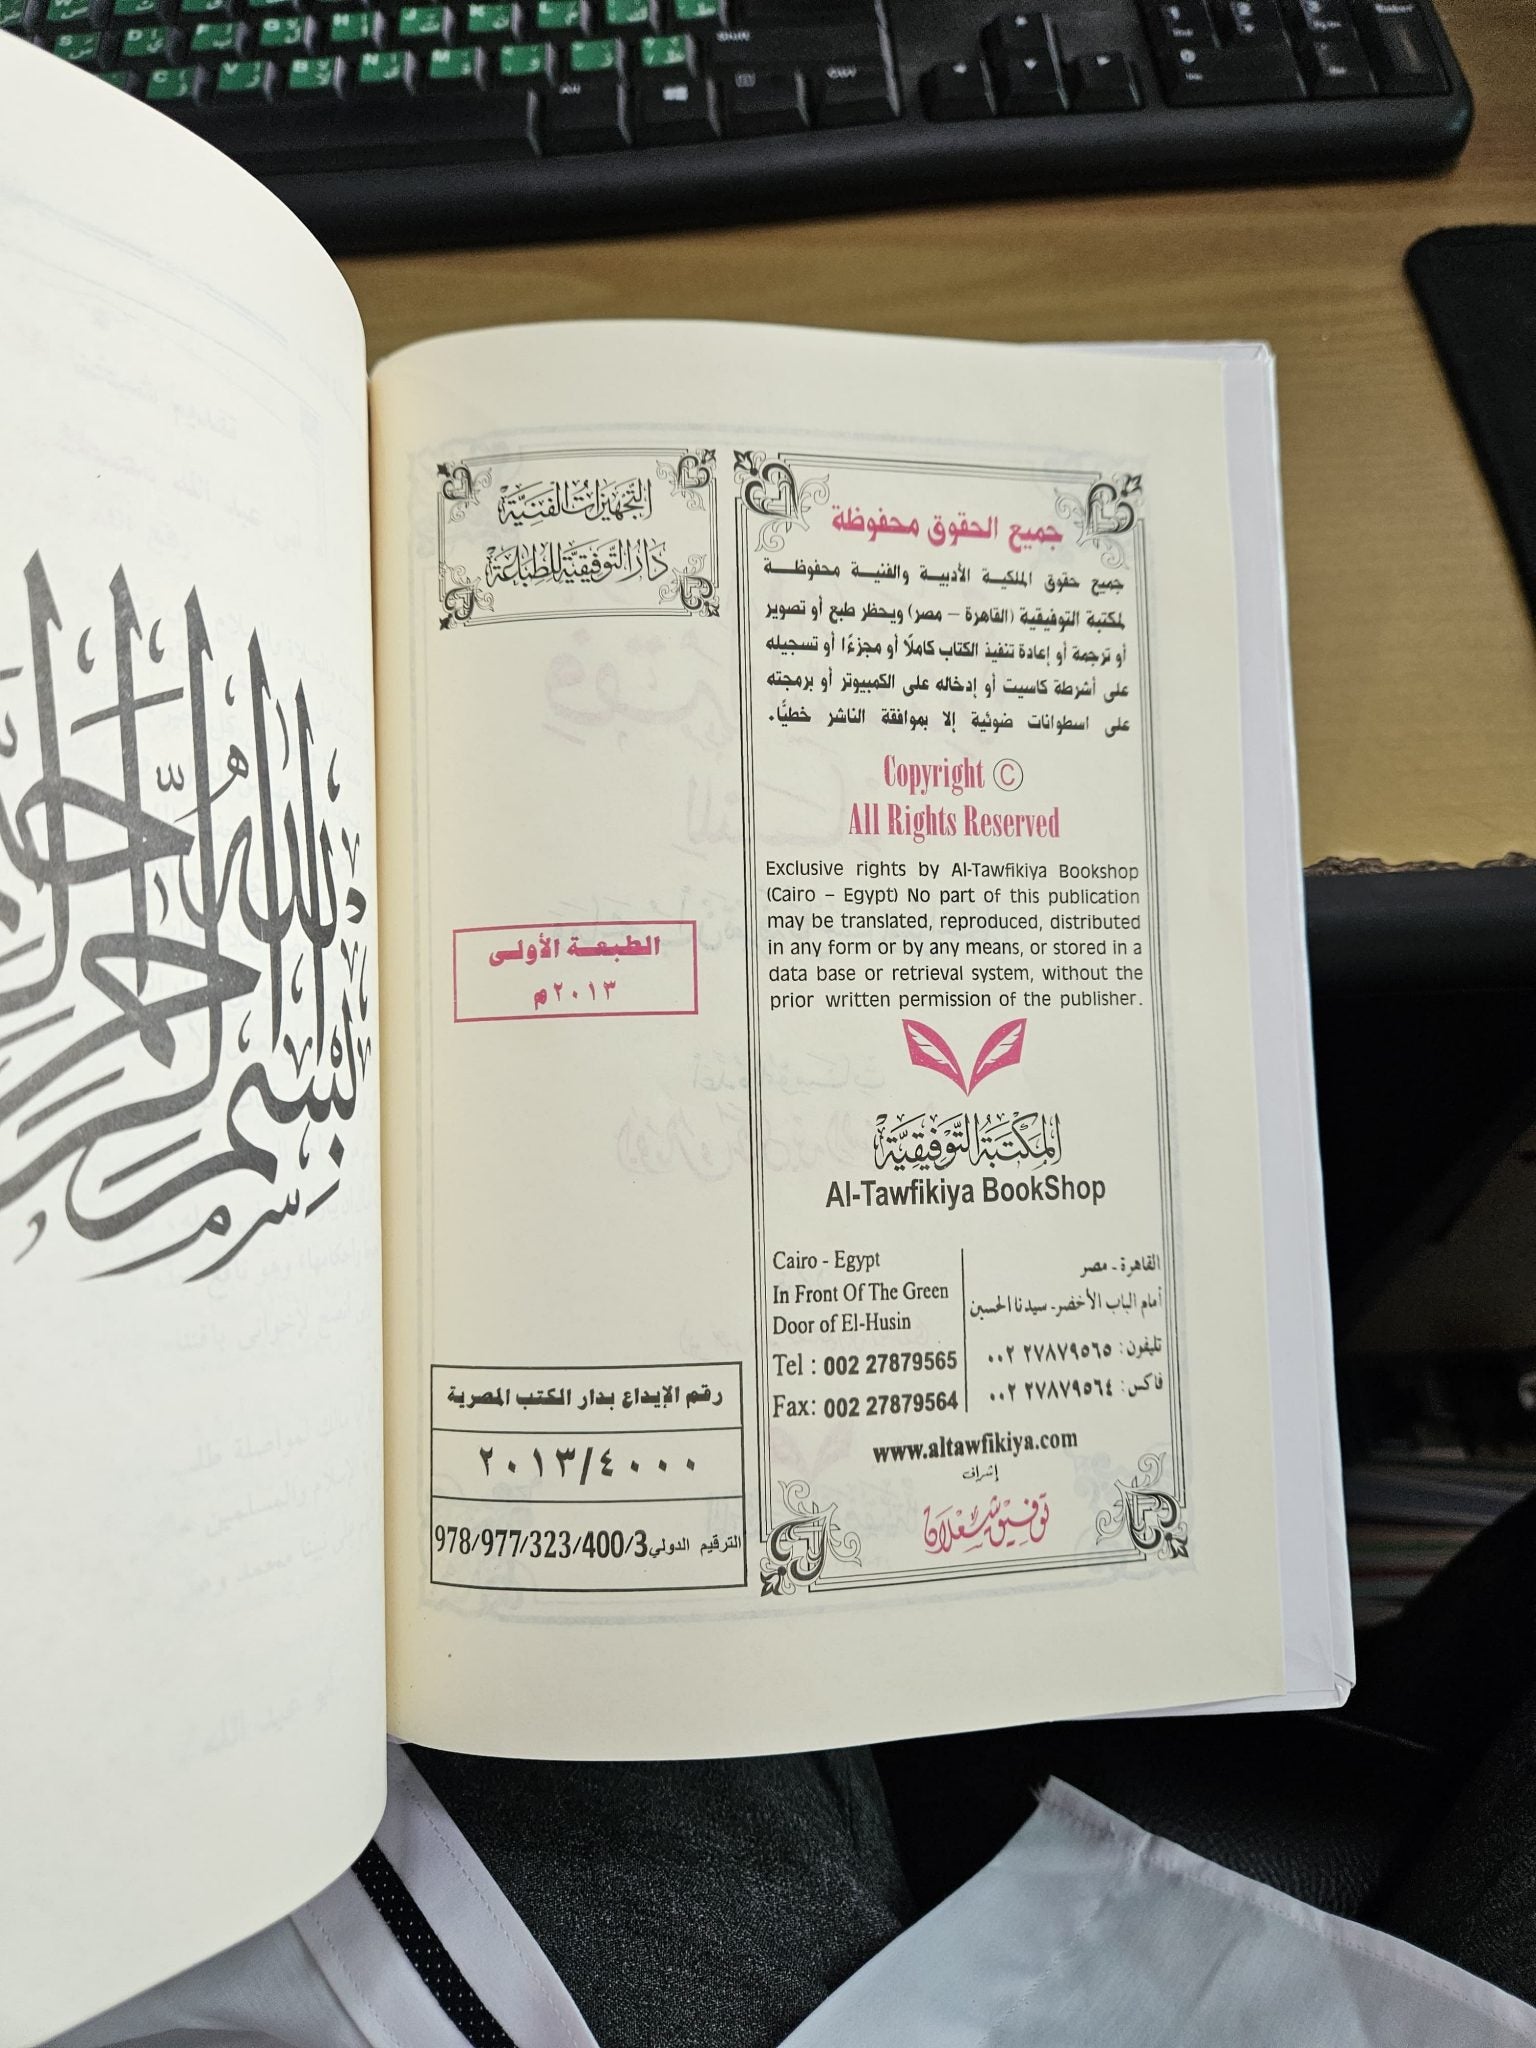 بسم الله الرحمن
جميع الحقوق محفوظة
جميع حقوق الملكية الأدبية والفنية محفوظة
لمكتبة التوفيقية (القاهرة – مصر) ويحظر طبع أو تصوير
أو ترجمة أو إعادة تنفيذ الكتاب كاملًا أو مجزءًا أو تسجيله
على أشرطة كاسيت أو إدخاله على الكمبيوتر أو برمجته
على اسطوانات ضوئية إلا بموافقة الناشر خطيًّا.
Copyright ©
All Rights Reserved
Exclusive rights by Al-Tawfikiya Bookshop
(Cairo – Egypt) No part of this publication
may be translated, reproduced, distributed
in any form or by any means, or stored in a
data base or retrieval system, without the
prior written permission of the publisher.
المكتبة التوفيقية
Al-Tawfikiya BookShop
القاهرة - مصر
أمام الباب الأخضر - سيدنا الحسين
تليفون : ٢٧٨٧٩٥٦٥ ٠٠٢
فاكس : ٢٧٨٧٩٥٦٤ ٠٠٢
Cairo - Egypt
In Front Of The Green
Door of El-Husin
Tel : 002 27879565
Fax: 002 27879564
www.altawfikiya.com
إشراف
توفيق شعلان
التجهيزات الفنية
دار التوفيقية للطباعة
الطبعة الأولى
٢٠١٣م
رقم الإيداع بدار الكتب المصرية
٢٠١٣/٤٠٠٠
الترقيم الدولي 978/977/323/400/3